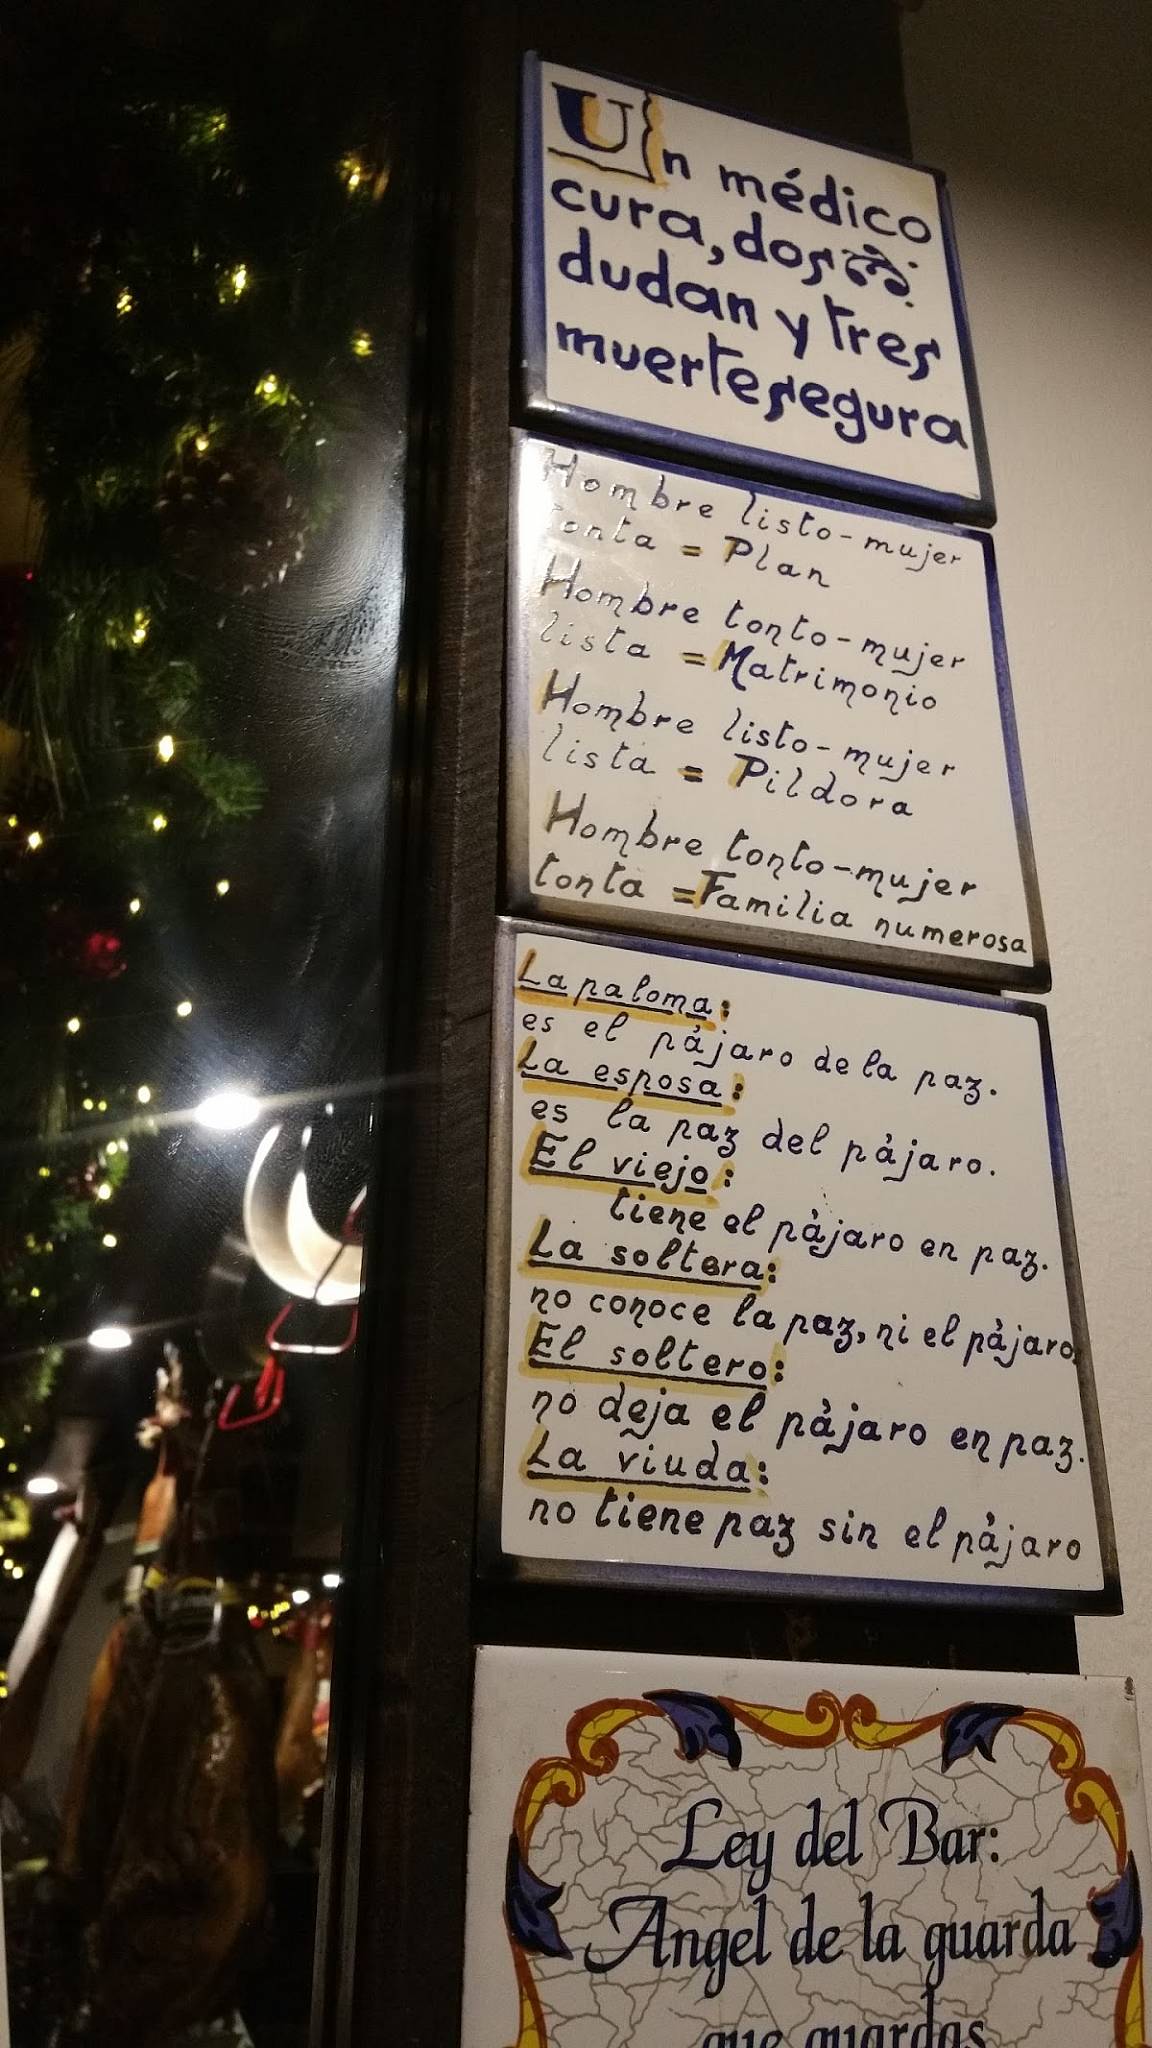 Un médico
cura, dos
dudan y tres
muerte segura
Hombre listo-mujer
tonta = Plan
Hombre tonto-mujer
lista = Matrimonio
Hombre listo-mujer
lista = Pildora
Hombre tonto-mujer
tonta = Familia numerosa
La paloma:
es el pájaro de la paz.
La esposa:
es la paz del pájaro.
El viejo:
tiene el pájaro en paz.
La soltera:
no conoce la paz, ni el pájaro.
El soltero:
no deja el pájaro en paz.
La viuda:
no tiene paz sin el pájaro
Ley del Bar:
Angel de la guarda
que guardas